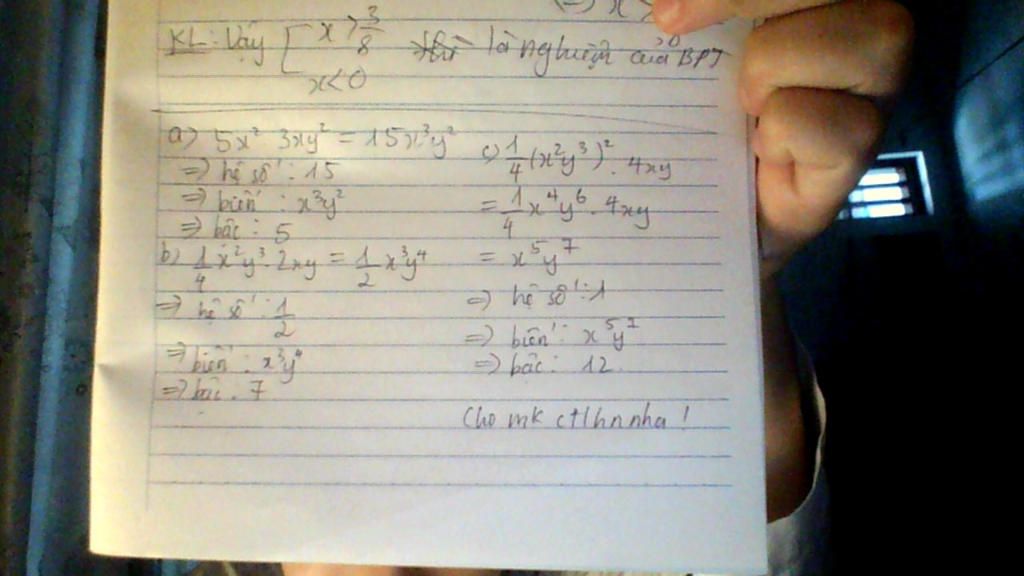 (=) x >
KL: Vậy [ x > 3/8 là nghiệm của BPT
x < 0
a) 5x² 3xy² = 15x³y²
=> hệ số: 15
=> biến: x³y²
=> bâc: 5
b) 1/4 x²y³. 2xy = 1/2 x³y⁴
=> hệ số: 1/2
=> biến: x³y⁴
=> bâc: 7
c) 1/4 (x²y³)². 4xy
= 1/4 x⁴y⁶. 4xy
= x⁵y⁷
=> hệ số: 1
=> biến: x⁵y⁷
=> bâc: 12.
Cho mk ctlhn nha !